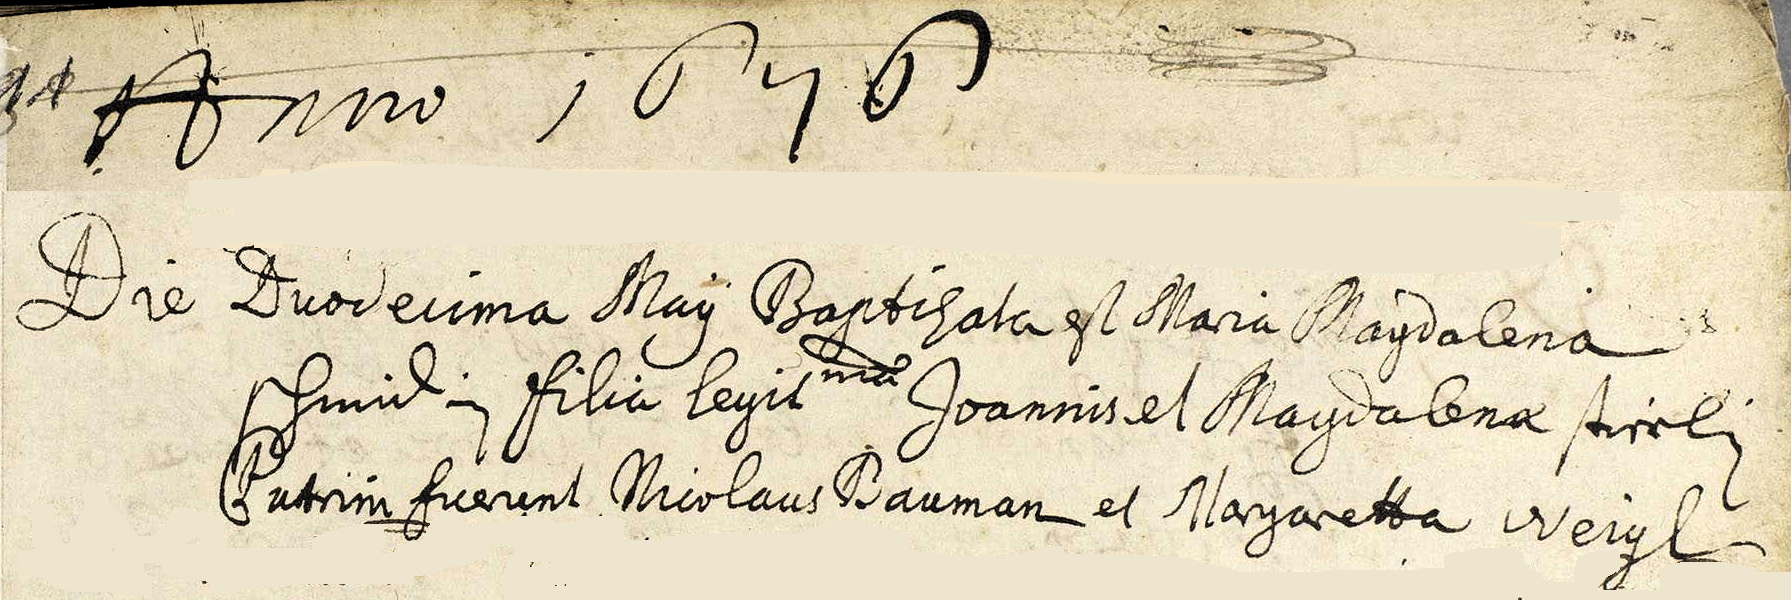 Anno 1676
Die Duodecima Maÿ Baptizata est Maria Magdalena
Schmidin filia legitma Joannis et Magdalenæ
Patrini fuerunt Nicolaus Bauman et Margaretta Weigl